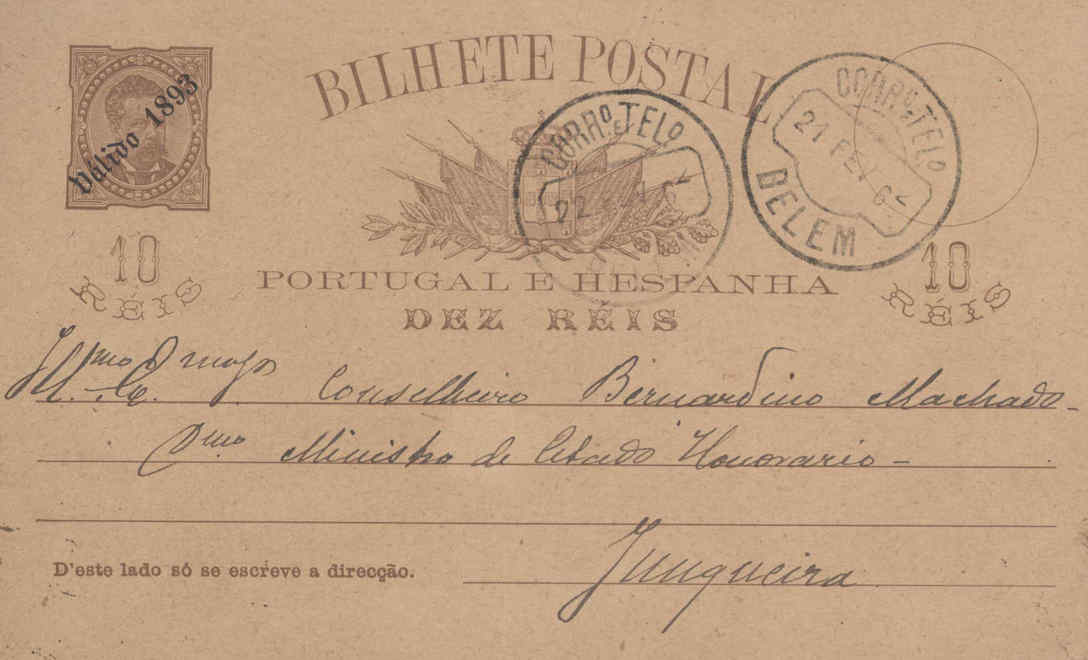 BILHETE POSTAL
Válido 1893
CORRº E TELº
22
CORRº E TELº
21 FEV
BELEM
10
RÉIS
PORTUGAL E HESPANHA
10
RÉIS
DEZ RÉIS
Conselheiro Bernardino Machado
Dmo Ministro de Estado Honorario
D'este lado só se escreve a direcção.
Junqueira